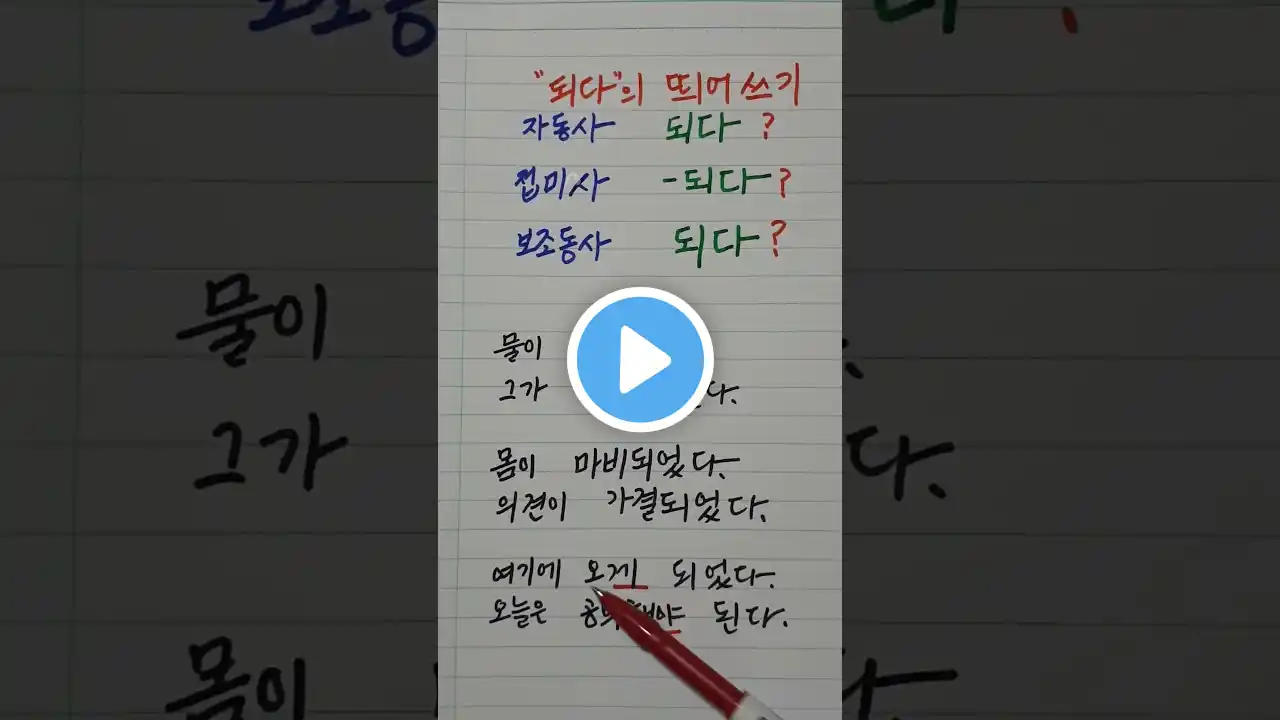 "되다"의 띄어쓰기
자동사 되다 ?
접미사 -되다 ?
보조동사 되다 ?
물이
그가 다.
몸이 마비되었다.
의견이 가결되었다.
여기에 오게 되었다.
오늘은 된다.